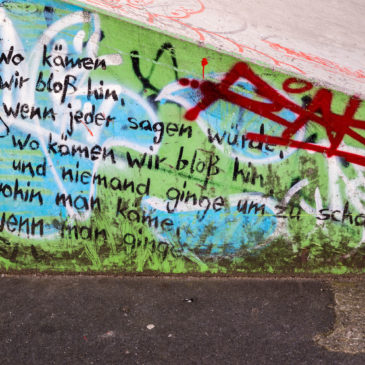 wo kämen
wir bloß hin,
wenn jeder sagen würde,
wo kämen wir bloß hin,
und niemand ginge um zu scha
wohin man käme,
wenn man ginge